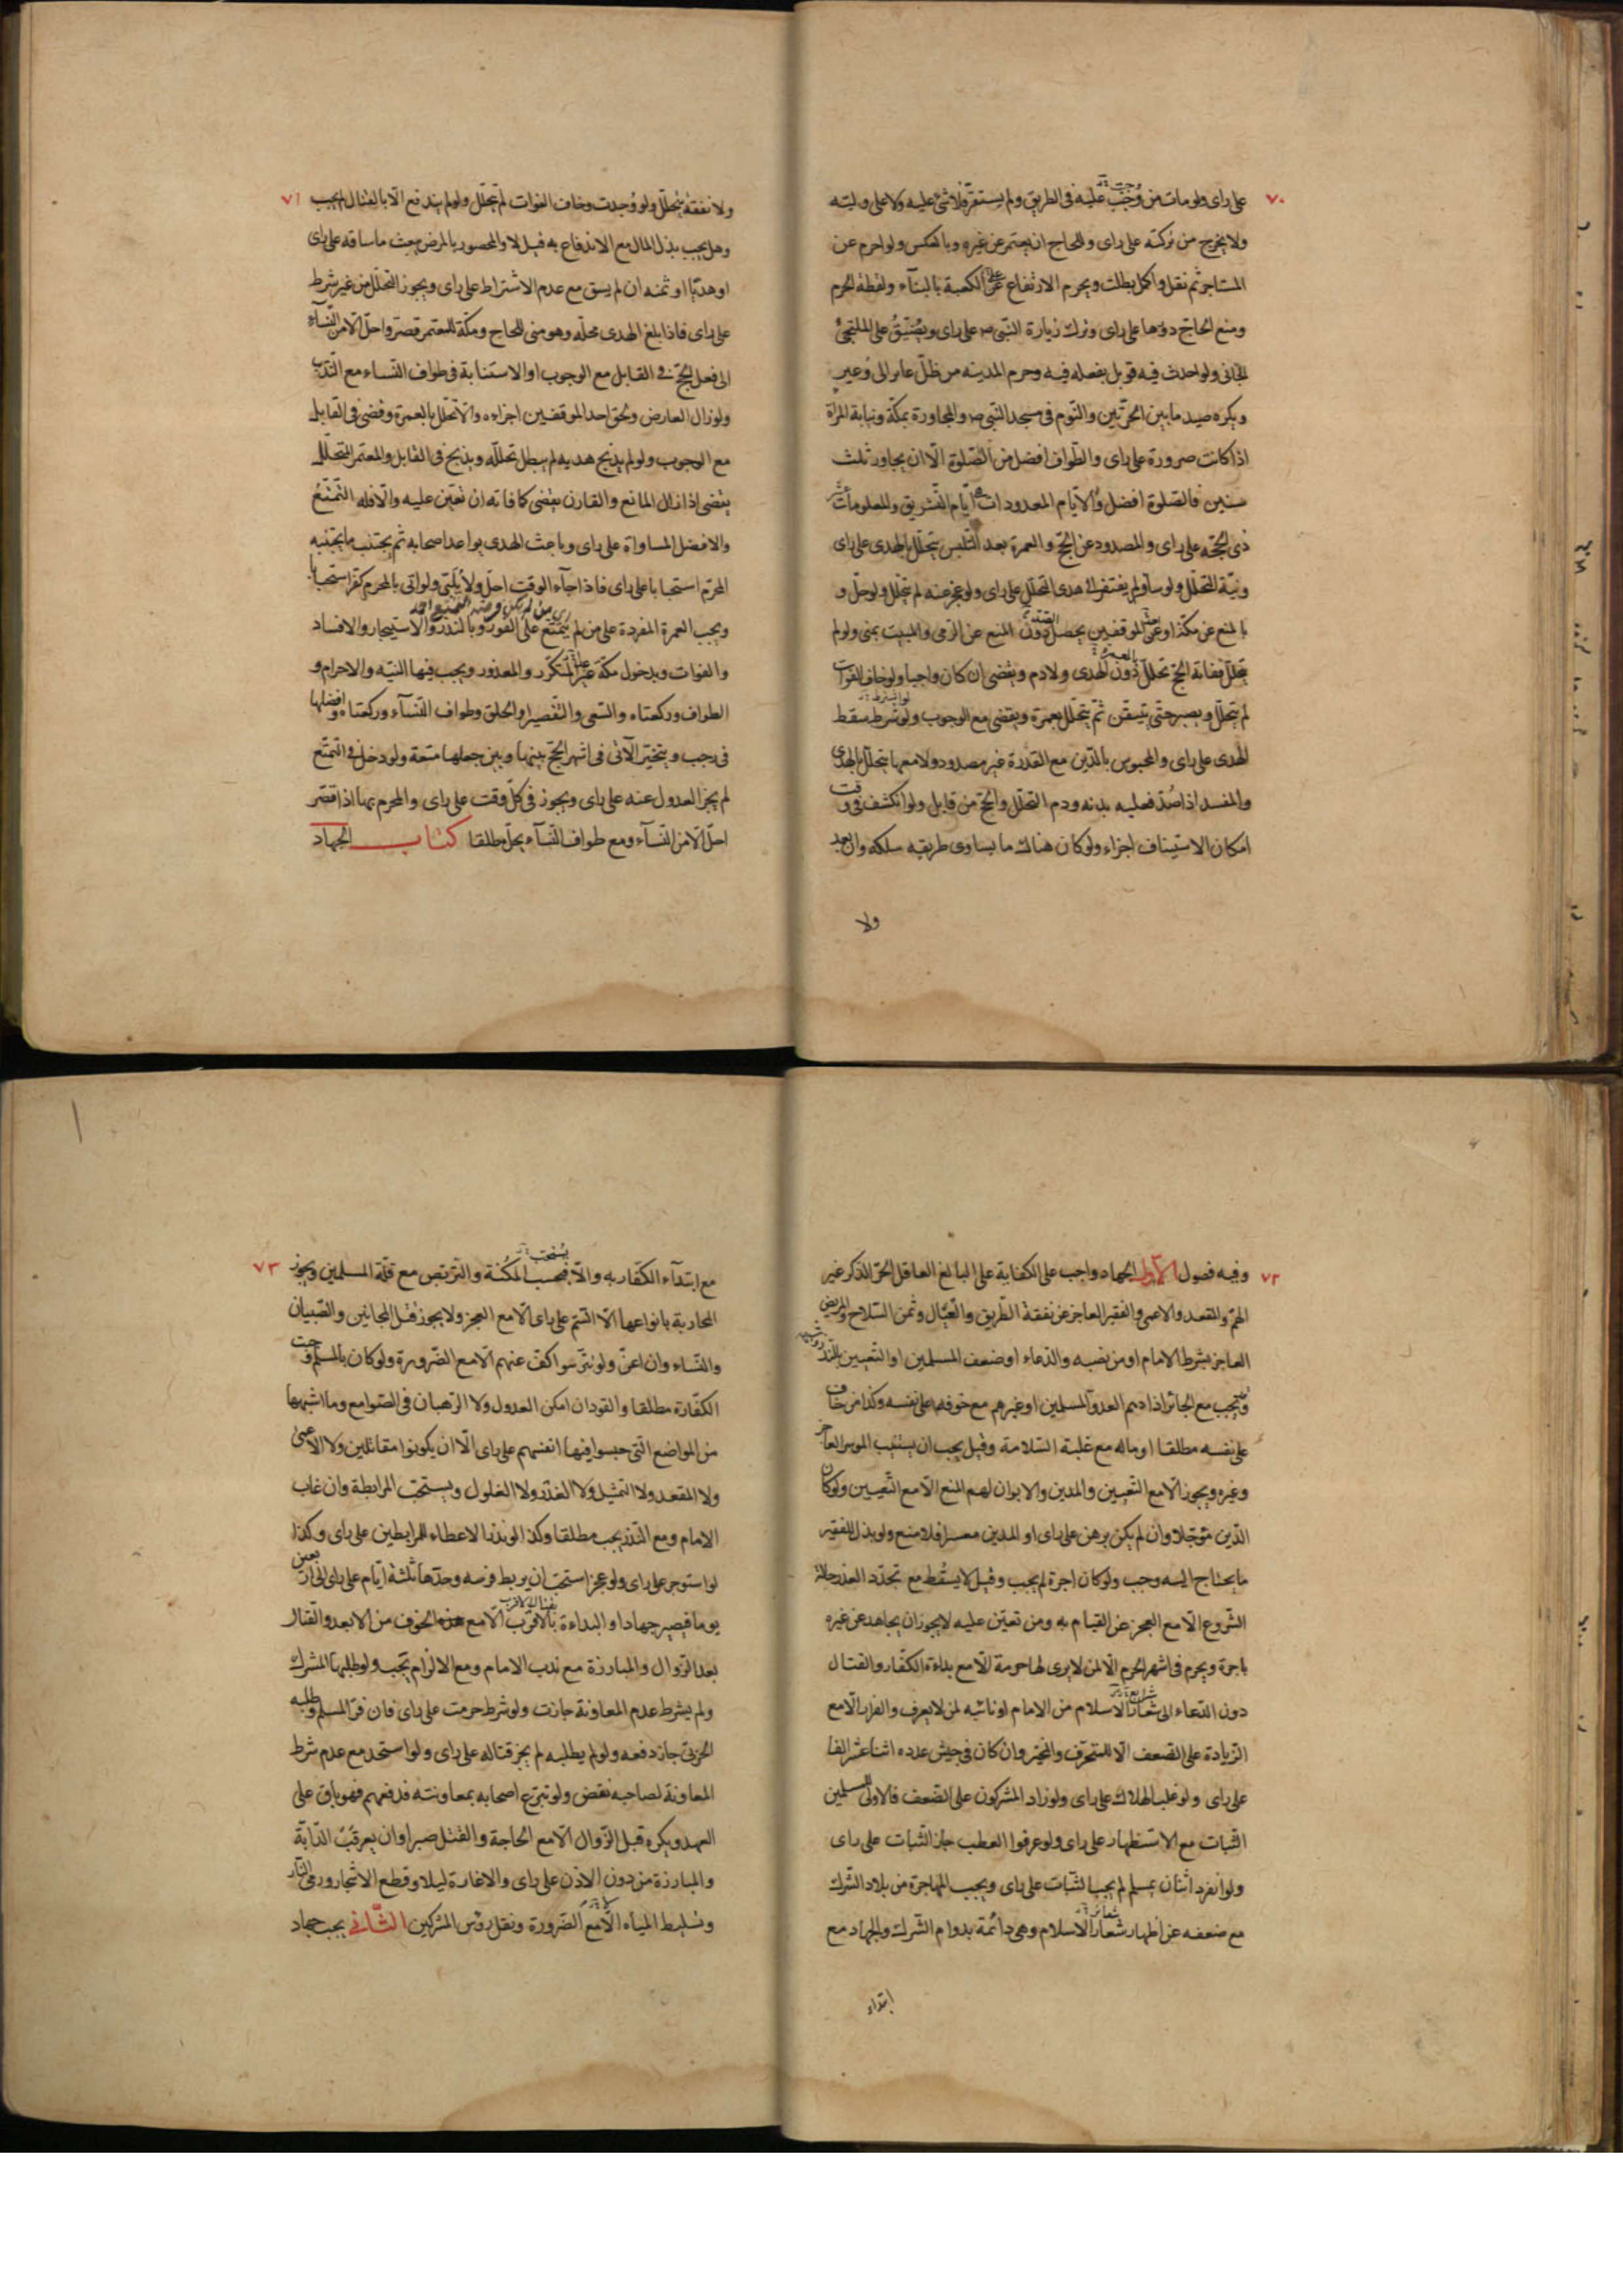 ٧٠
على راى ولو مات من وجب عليه فى الطريق ولم يستقر فلا شئ عليه ولا على وليه
ولا يخرج من تركته على راى وللحاج ان يعتمر عن غيره وبالعكس ولو احرم عن
المستاجر ثم نقل او اكمل بطلت ويحرم الارتفاع على الكعبة بالبناء ولقطة الحرم
ومنع الحاج دورها على راى وترك زيارة النبى ص على راى ويضيق على الملتجئ
الجانى ولو احدث فيه قوبل بفعله فيه وحرم المدينه من ظل عاير الى وعير
ويكره صيد ما بين الحرتين والنوم فى مسجد النبى ص والمجاورة بمكة ونيابة المراة
اذا كانت صرورة على راى والطواف افضل من الصلوة الا ان يجاور ثلث
سنين فالصلوة افضل والايام المعدودات ايام التشريق والمعلومات عشر
ذى الحجه على راى والمصدود عن الحج والعمرة بعد التلبس يتحلل بالهدى على راى
ونية التحلل ولو ساق لم يفتقر الى هدى التحلل على راى ولو عجز عنه لم يتحلل ولو حل و
بالمنع عن مكة او عن الموقفين يحصل دون المنع عن الرمى والمبيت بمنى ولو لم
يتحلل ففاته الحج تحلل دون الهدى ولا دم ويقضى ان كان واجبا ولو خاف الفوات
لم يتحلل ويصبر حتى يتيقن ثم يتحلل بعمرة ويقضى مع الوجوب ولو شرط سقط
الهدى على راى والمحبوس بالدين مع القدرة غير مصدود ولا معها يتحلل بالهدى
والمفسد اذا صد فعليه بدنه ودم التحلل والحج من قابل ولو انكشف فى وقت
امكان الاستيناف اجزاء ولو كان هناك ما يساوى طريقه سلكه وان بعد
ولا
٧١
ولا نفقة يتحلل ولو وجدت وخاف الفوات لم يتحلل ولو لم يندفع الا بالقتال لم يجب
وهل يجب بذل المال مع الاندفاع به قيل لا والمحصور بالمرض يبعث ما ساقه على راى
او هديا او ثمنه ان لم يسق مع عدم الاشتراط على راى ويجوز التحلل من غير شرط
على راى فاذا بلغ الهدى محله وهو منى للحاج ومكة للمعتمر قصر واحل الا من النساء
الى فعل الحج فى القابل مع الوجوب او الاستنابة فى طواف النساء مع الندب
ولو زال العارض ولحق احد الموقفين اجزاءه والا تحلل بالعمرة وقضى فى القابل
مع الوجوب ولو لم يذبح هديه لم يبطل تحلله ويذبح فى القابل والمعتمر المتحلل
يقضى اذا زال المانع والقارن يقضى كما فاته ان تعين عليه والا فله التمتع
والافضل المساواة على راى وباعث الهدى يواعد اصحابه ثم يجتنب ما يجتنبه
المحرم استحبابا على راى فاذا جاء الوقت احل ولا يلبى ولو اتى بالمحرم كفر استحبابا
ويجب العمرة المفردة على من لم يتمتع على الفور وبالنذر والاستيجار والافساد
والفوات وبدخول مكة على غير المتكرر والمعذور ويجب فيها النية والاحرام و
الطواف وركعتاه والسعى والتقصير او الحلق وطواف النساء وركعتاه وافضلها
فى رجب ويتخير الآتى فى اشهر الحج بينها وبين جعلها متعة ولو دخل فى التمتع
لم يجز العدول عنه على راى ويجوز فى كل وقت على راى والمحرم بها اذا قصر
احل الا من النساء ومع طواف النساء يحل مطلقا كتاب الجهاد
٧٢
وفيه فصول الاول الجهاد واجب على الكفاية على البالغ العاقل الحر الذكر غير
الهم والمقعد والاعمى والفقير العاجز عن نفقة الطريق والعيال وثمن السلاح والمريض
العاجز بشرط الامام او من نصبه والدعاء او ضعف المسلمين او التعيين بالنذر وشبهه
ويجب مع الجائر اذا دهم العدو المسلمين او غيرهم مع خوفه على نفسه وكذا من خاف
على نفسه مطلقا او ماله مع غلبة السلامة وقيل يجب ان يستنيب الموسر العاجز
وغيره ويجوز الا مع التعيين والمدين والابوان لهم المنع الا مع التعيين ولو كان
الدين مؤجلا وان لم يكن برهن على راى او المدين معسرا فلا منع ولو بذل للفقير
ما يحتاج اليه وجب ولو كان اجرة لم يجب وقيل لا يسقط مع تجدد العذر حالة
الشروع الا مع العجز عن القيام به ومن تعين عليه لا يجوز ان يجاهد عن غيره
باجرة ويحرم فى اشهر الحرم الا لمن لا يرى لها حرمة الا مع بداءة الكفار والقتال
دون الدعاء الى شعار الاسلام من الامام او نائبه لمن لا يعرف والفرار الا مع
الزيادة على الضعف الا للمتحرف والمتحيز وان كان فى جيش عدده اثنا عشر الفا
على راى ولو غلب الهلاك على راى ولو زاد المشركون على الضعف فالاولى للمسلمين
الثبات مع الاستظهار على راى ولو عرفوا العطب جاز الثبات على راى
ولو انفرد اثنان بمسلم لم يجب الثبات على راى ويجب المهاجرة من بلاد الشرك
مع ضعفه عن اظهار شعار الاسلام وهى دائمة بدوام الشرك والجهاد مع
ابتداء
٧٣
مع ابتداء الكفار به والا فبحسب المكنة والتربص مع قلة المسلمين ويجوز
المحاربة بانواعها الا السم على راى الا مع العجز ولا يجوز قتل المجانين والصبيان
والنساء وان اعن ولو تترسوا كف عنهم الا مع الضرورة ولو كان بالمسلم وجبت
الكفارة مطلقا والقود ان امكن العدول ولا الرهبان فى الصوامع وما اشبهها
من المواضع التى حبسوا فيها انفسهم على راى الا ان يكونوا مقاتلين ولا الاعمى
ولا المقعد ولا التمثيل ولا الغدر ولا الغلول ويستحب المرابطة وان غاب
الامام ومع النذر يجب مطلقا وكذا لو نذر الاعطاء للمرابطين على راى وكذا
لو استوجر على راى ولو عجز استحب ان يربط فرسه وحدها ثلثة ايام على راى الى اربعين
يوما فيصير جهادا والبداءة بالاقرب الا مع الخوف من الابعد والقتال
بعد الزوال والمبارزة مع ندب الامام ومع الالزام تجب ولو طلبها المشرك
ولم يشرط عدم المعاونة جازت ولو شرط حرمت على راى فان فر المسلم وطلبه
الحربى جاز دفعه ولو لم يطلبه لم يجز قتاله على راى ولو استنجد مع عدم شرط
المعاونة لصاحبه نقض ولو تبرع اصحابه بمعاونته فدفعهم فهو باق على
العهد ويكره قبل الزوال الا مع الحاجة والقتل صبرا وان يعرقب الدابة
والمبارزة من دون الاذن على راى والاغارة ليلا وقطع الاشجار ورمى النار
وتسليط المياه الا مع الضرورة ونقل رؤس المشركين الثانى يجب جهاد